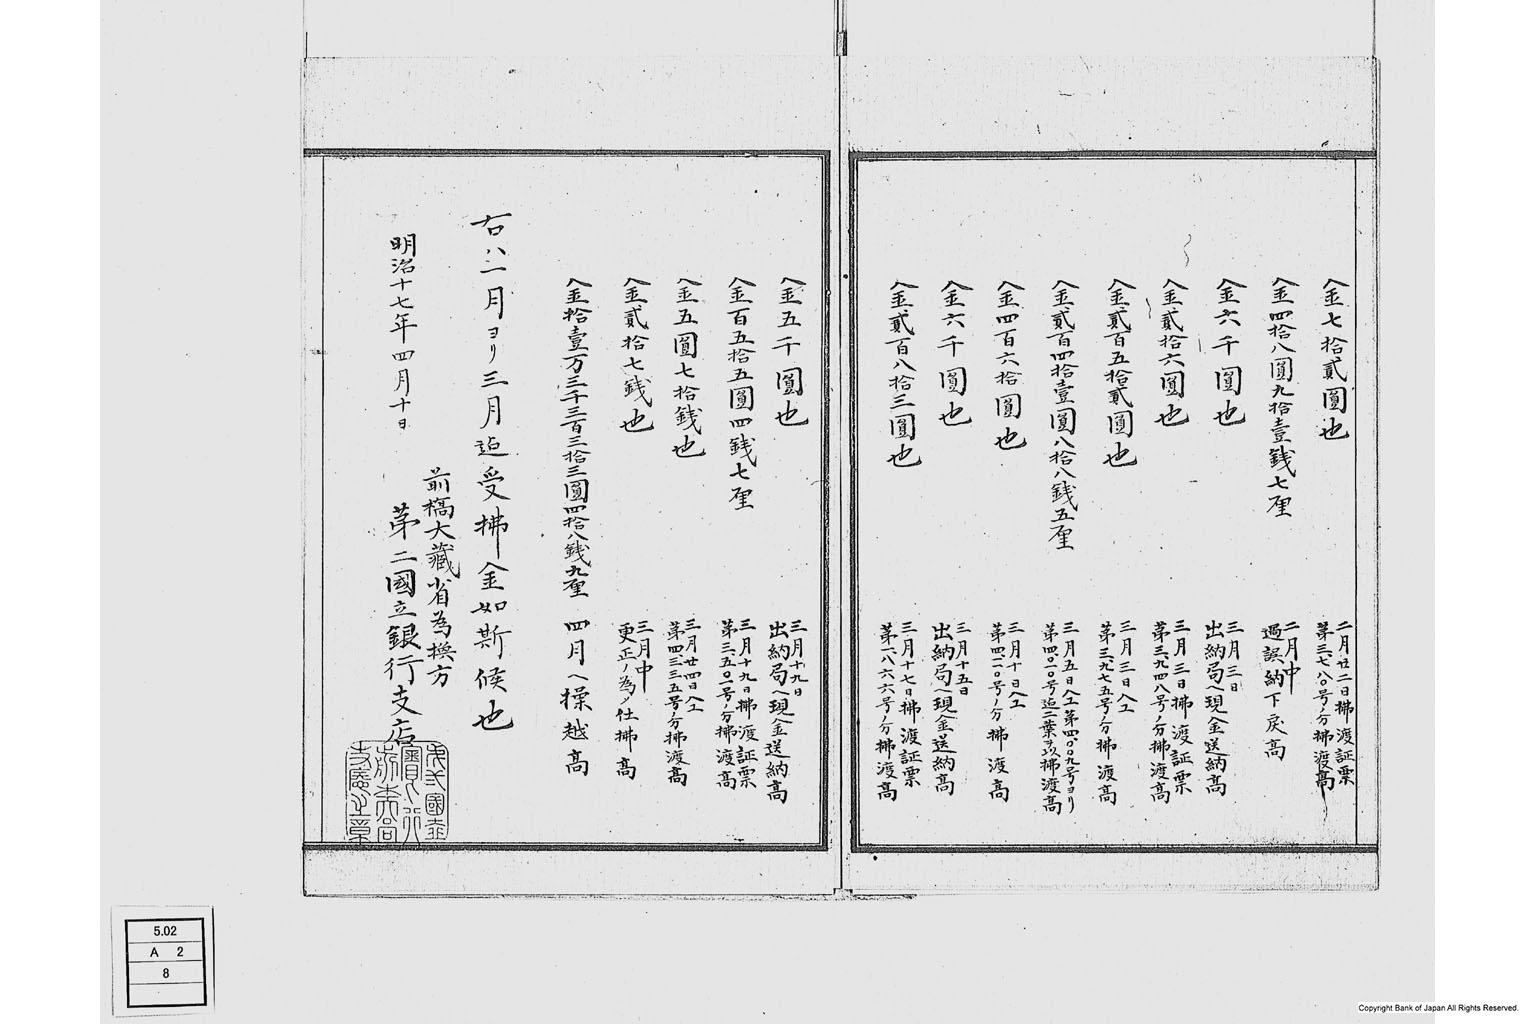 金七拾貳圓也
二月廿二日拂渡証票
第三七八〇号ノ分拂渡高
金四拾八圓九拾壹錢七厘
二月中
過誤納下戻高
金六千圓也
三月三日
出納局ヘ現金送納高
金貳拾六圓也
三月三日拂渡証票
第三九四八号ノ分拂渡高
金貳百五拾貳圓也
三月三日仝
第三九七五号ノ分拂渡高
金貳百四拾壹圓八拾八錢五厘
三月五日仝第四〇〇九号ヨリ
第四〇二〇号迠二葉ノ分拂渡高
金四百六拾圓也
三月十日仝
第四二一〇号ノ分拂渡高
金六千圓也
三月十五日
出納局ヘ現金送納高
金貳百八拾三圓也
三月十七日拂渡証票
第一八六六号ノ分拂渡高
金五千圓也
三月十九日
出納局ヘ現金送納高
金百五拾五圓四錢七厘
三月十九日拂渡証票
第三五〇二号ノ分拂渡高
金五圓七拾錢也
三月廿四日仝
第四三三五号ノ分拂渡高
金貳拾七錢也
三月中
更正ノ為メ仕拂高
金拾壹万三千三百三拾三圓四拾八錢九厘
四月ヘ操越高
右ハ二月ヨリ三月迠受拂金如斯候也
明治十七年四月十日
前橋大藏省為換方
第二國立銀行支店
5.02
A 2
8
Copyright Bank of Japan All Rights Reserved.